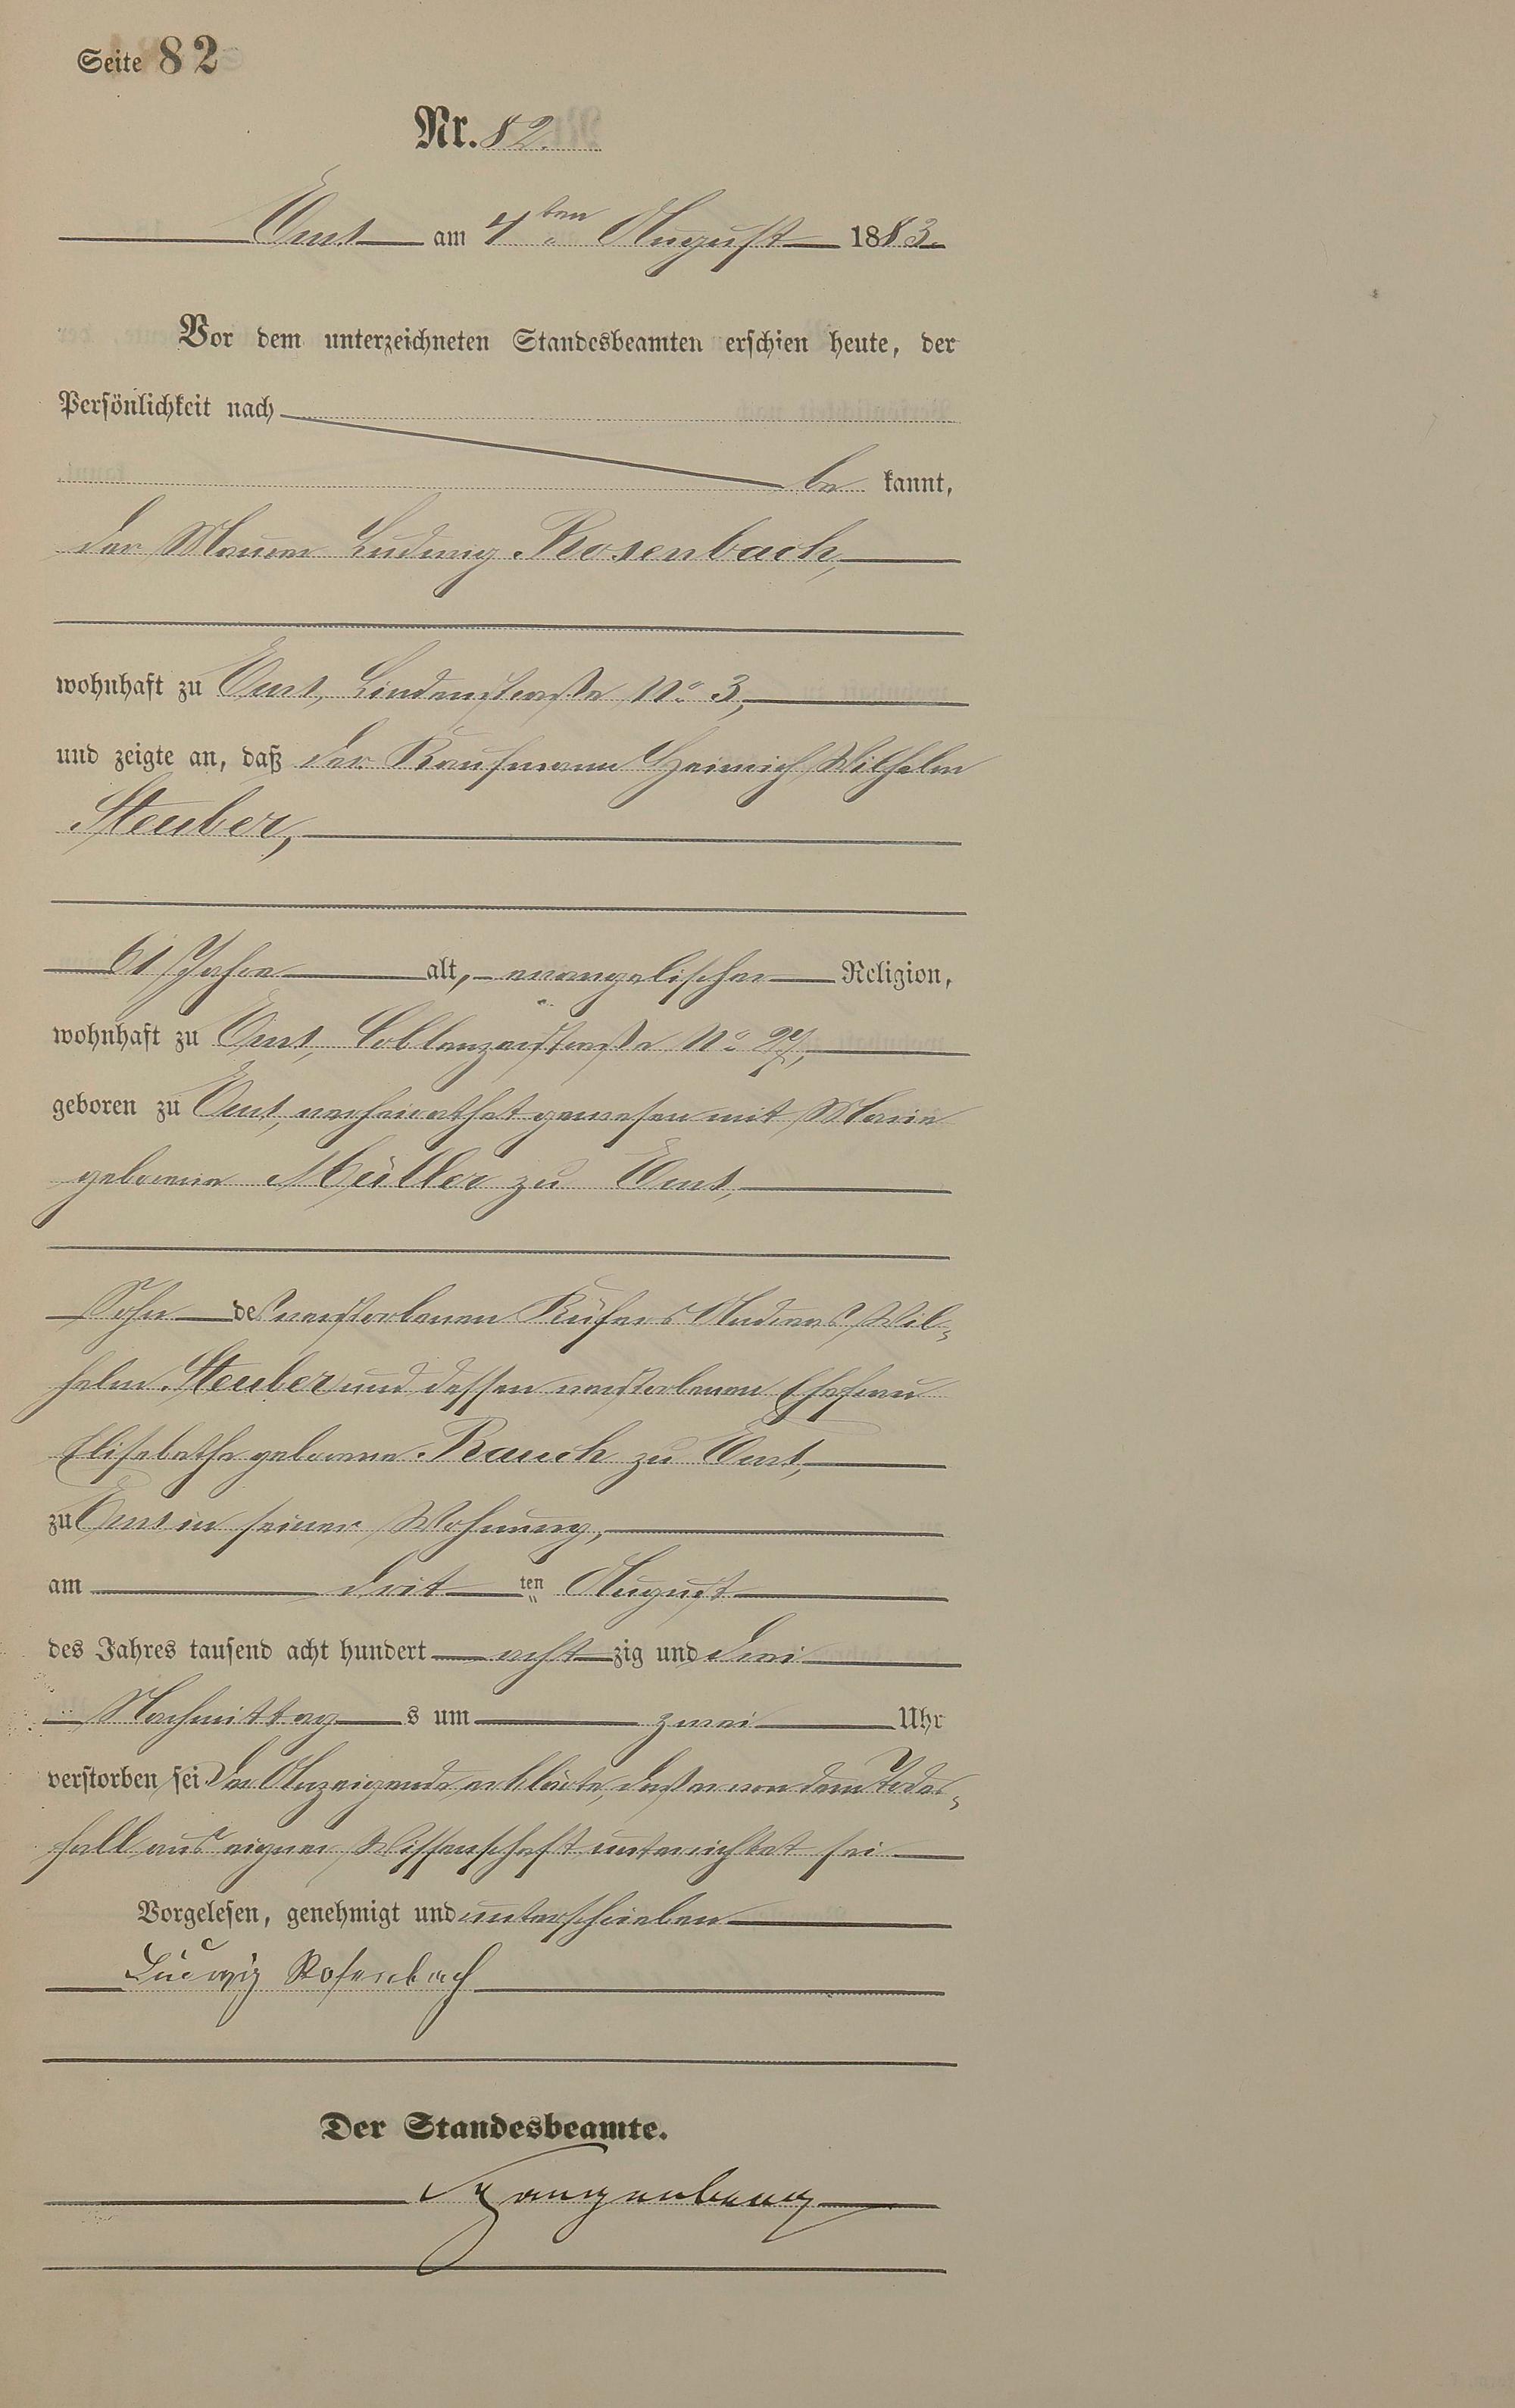 Seite 82
Nr. 82.
Ems am 4ten August 1883.
Vor dem unterzeichneten Standesbeamten erschien heute, der
Persönlichkeit nach
be kannt,
der Maurer Ludwig Rosenbach,
wohnhaft zu Ems, Lindenstraße No. 3,
und zeigte an, daß der Kaufmann Heinrich Wilhelm
Steuber,
61 Jahre alt, evangelischer Religion,
wohnhaft zu Ems, Coblenzerstraße No. 27,
geboren zu Ems, verheirathet gewesen mit Marie
geborene Müller zu Ems,
Sohn des verstorbenen Küfers Andreas Wil-
helm Steuber und dessen verstorbenen Ehefrau
Elisabethe geborene Bauch zu Ems,
zu Ems in seiner Wohnung,
am drit ten August
des Jahres tausend acht hundert acht zig und drei
Nachmittag s um zwei Uhr
verstorben sei Der Anzeigende erklärte, daß er von dem Todes-
fall aus eigner Wissenschaft unterrichtet sei
Vorgelesen, genehmigt und unterschrieben
Ludwig Rosenbach
Der Standesbeamte.